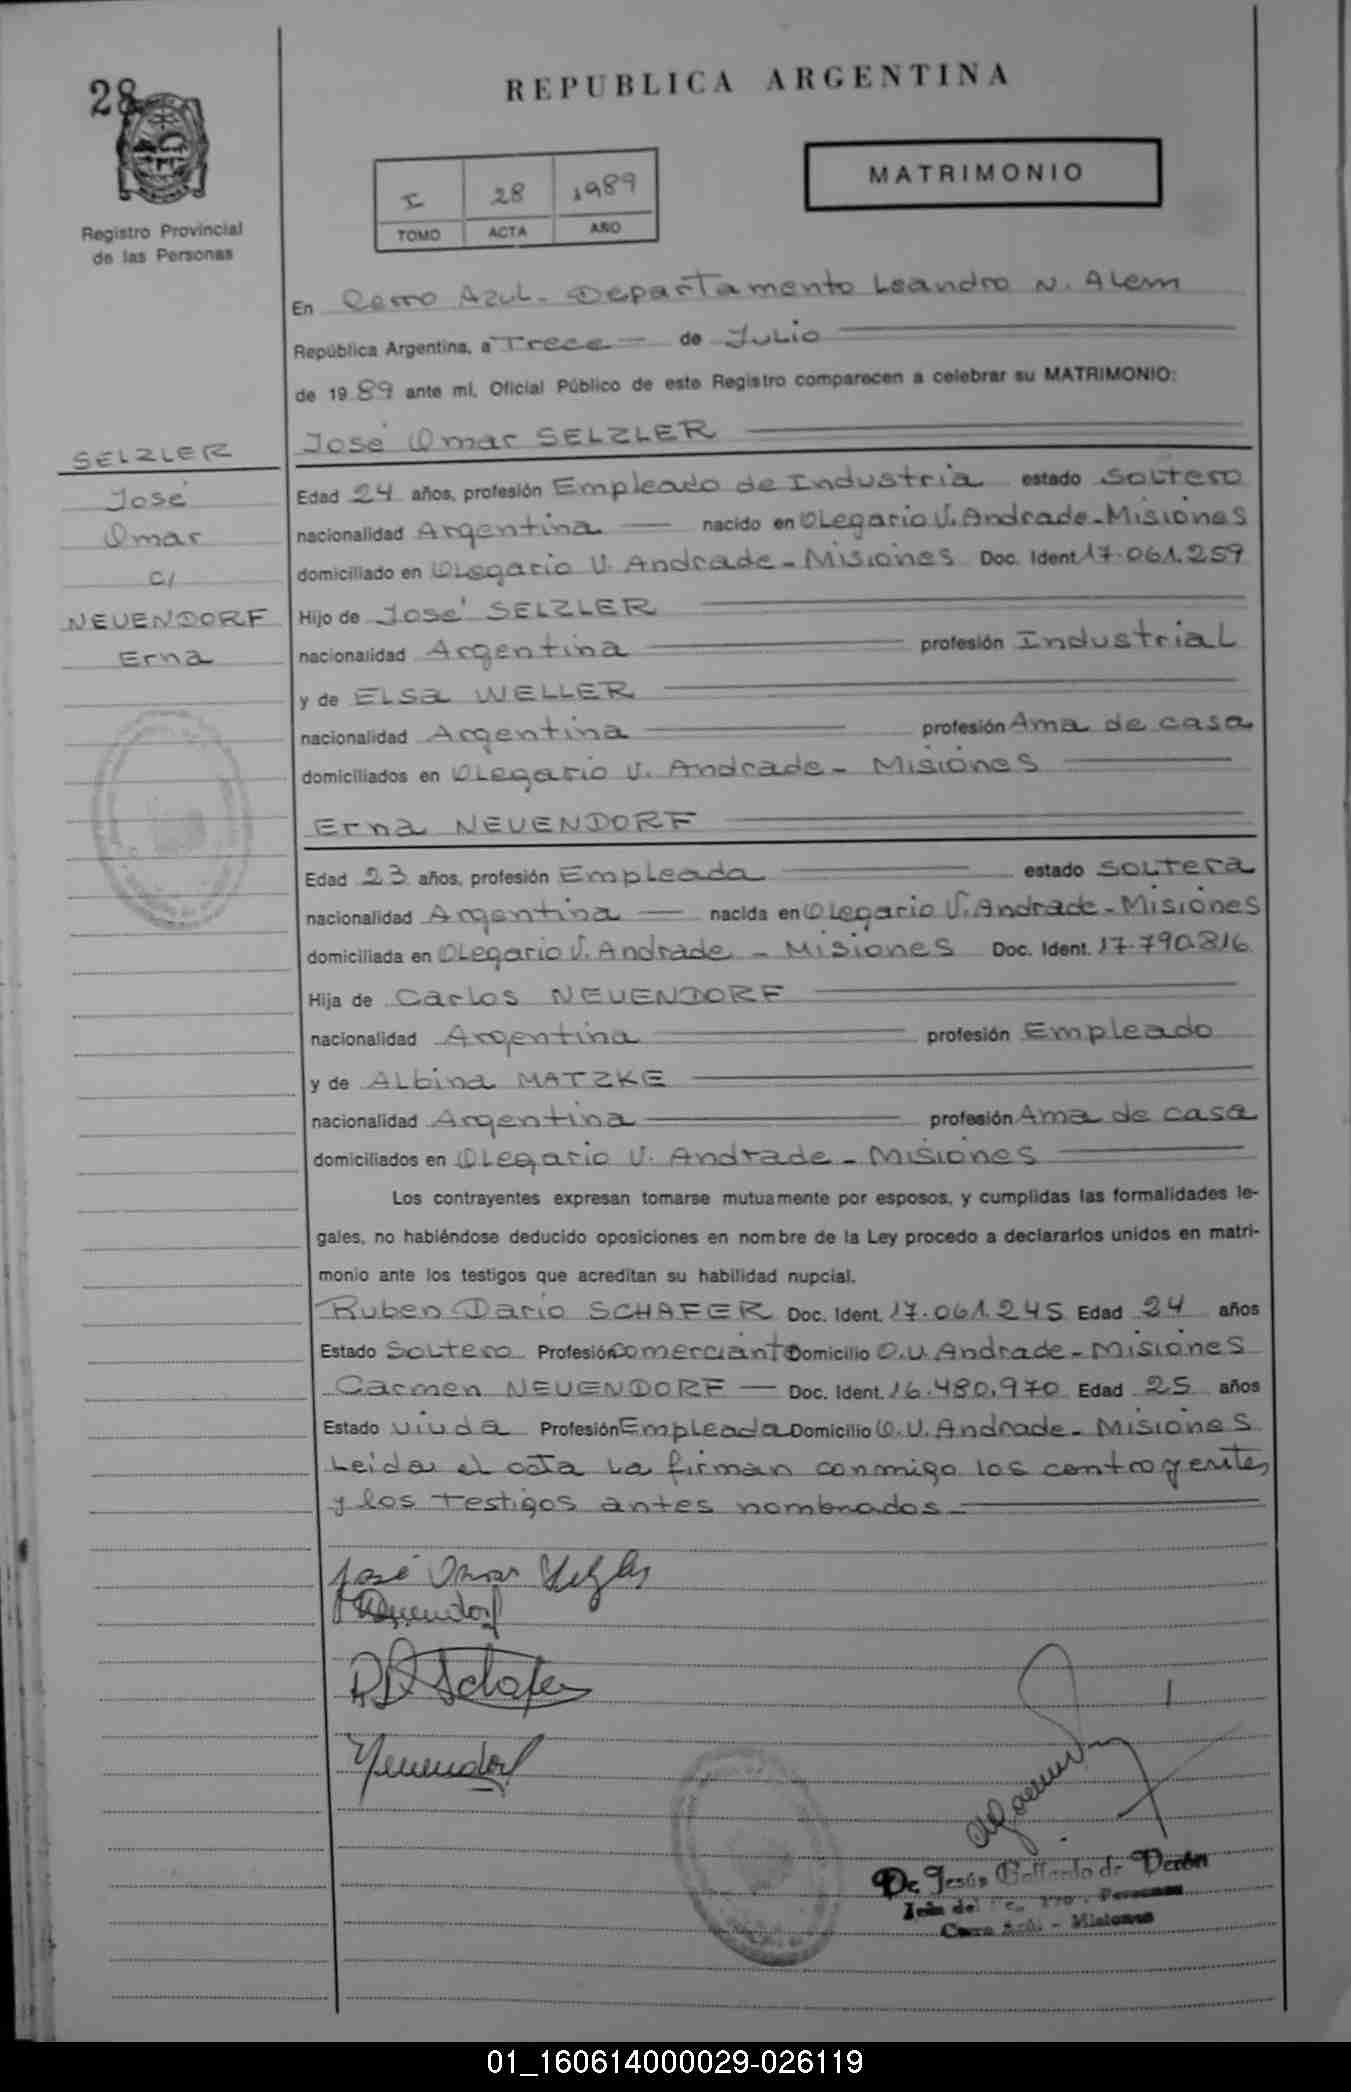 28
REPUBLICA ARGENTINA
MATRIMONIO
Registro Provincial
de las Personas
I 28 1989
TOMO ACTA AÑO
En Cerro Azul. Departamento Leandro N. Alem
República Argentina, a Trece de Julio
de 1989 ante mí, Oficial Público de este Registro comparecen a celebrar su MATRIMONIO:
SELZLER
José
Omar
c/
NEUENDORF
Erna
José Omar SELZLER
Edad 24 años, profesión Empleado de Industria estado soltero
nacionalidad Argentina nacido en Olegario V. Andrade-Misiones
domiciliado en Olegario V. Andrade-Misiones Doc. Ident. 17.061.259
Hijo de José SELZLER
nacionalidad Argentina profesión Industrial
y de Elsa WELLER
nacionalidad Argentina profesión Ama de casa
domiciliados en Olegario V. Andrade- Misiones
Erna NEUENDORF
Edad 23 años, profesión Empleada estado soltera
nacionalidad Argentina nacida en Olegario V. Andrade-Misiones
domiciliada en Olegario V. Andrade - Misiones Doc. Ident. 17.790.816
Hija de Carlos NEUENDORF
nacionalidad Argentina profesión Empleado
y de Albina MATZKE
nacionalidad Argentina profesión Ama de casa
domiciliados en Olegario V. Andrade - Misiones
Los contrayentes expresan tomarse mutuamente por esposos, y cumplidas las formalidades le-
gales, no habiéndose deducido oposiciones en nombre de la Ley procedo a declararlos unidos en matri-
monio ante los testigos que acreditan su habilidad nupcial.
Ruben Dario SCHAFER Doc. Ident. 17.061.245 Edad 24 años
Estado Soltero Profesión comerciante Domicilio O.V. Andrade-Misiones
Carmen NEUENDORF Doc. Ident. 16.480.970 Edad 25 años
Estado viuda Profesión Empleada Domicilio O.V. Andrade- Misiones
Leida el acta la firman conmigo los contrayentes
y los testigos antes nombrados
José Omar Selzler
Neuendorf
R D Schafer
Neuendorf
De Jesús Gallardo de Verón
Cerro Azul - Misiones
01_160614000029-026119